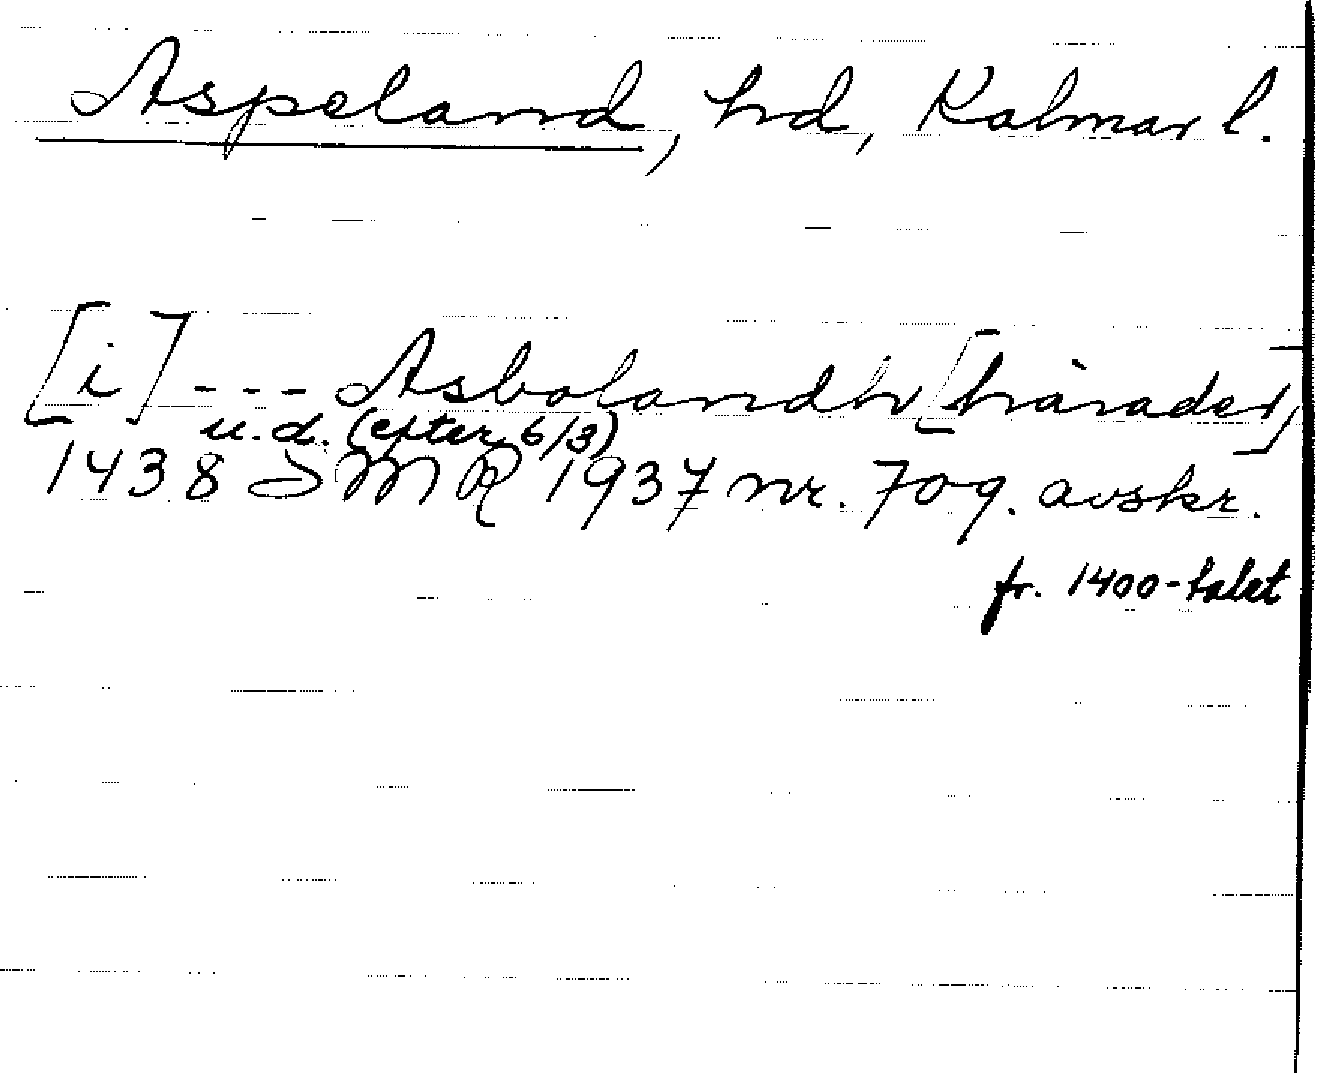 Aspeland, hd, Kalmar l.
[i] --- Asbolandh [härader]
u.d. (efter 6/3)
1438 SMR 1937 nr. 709. avskr.
fr. 1400-talet